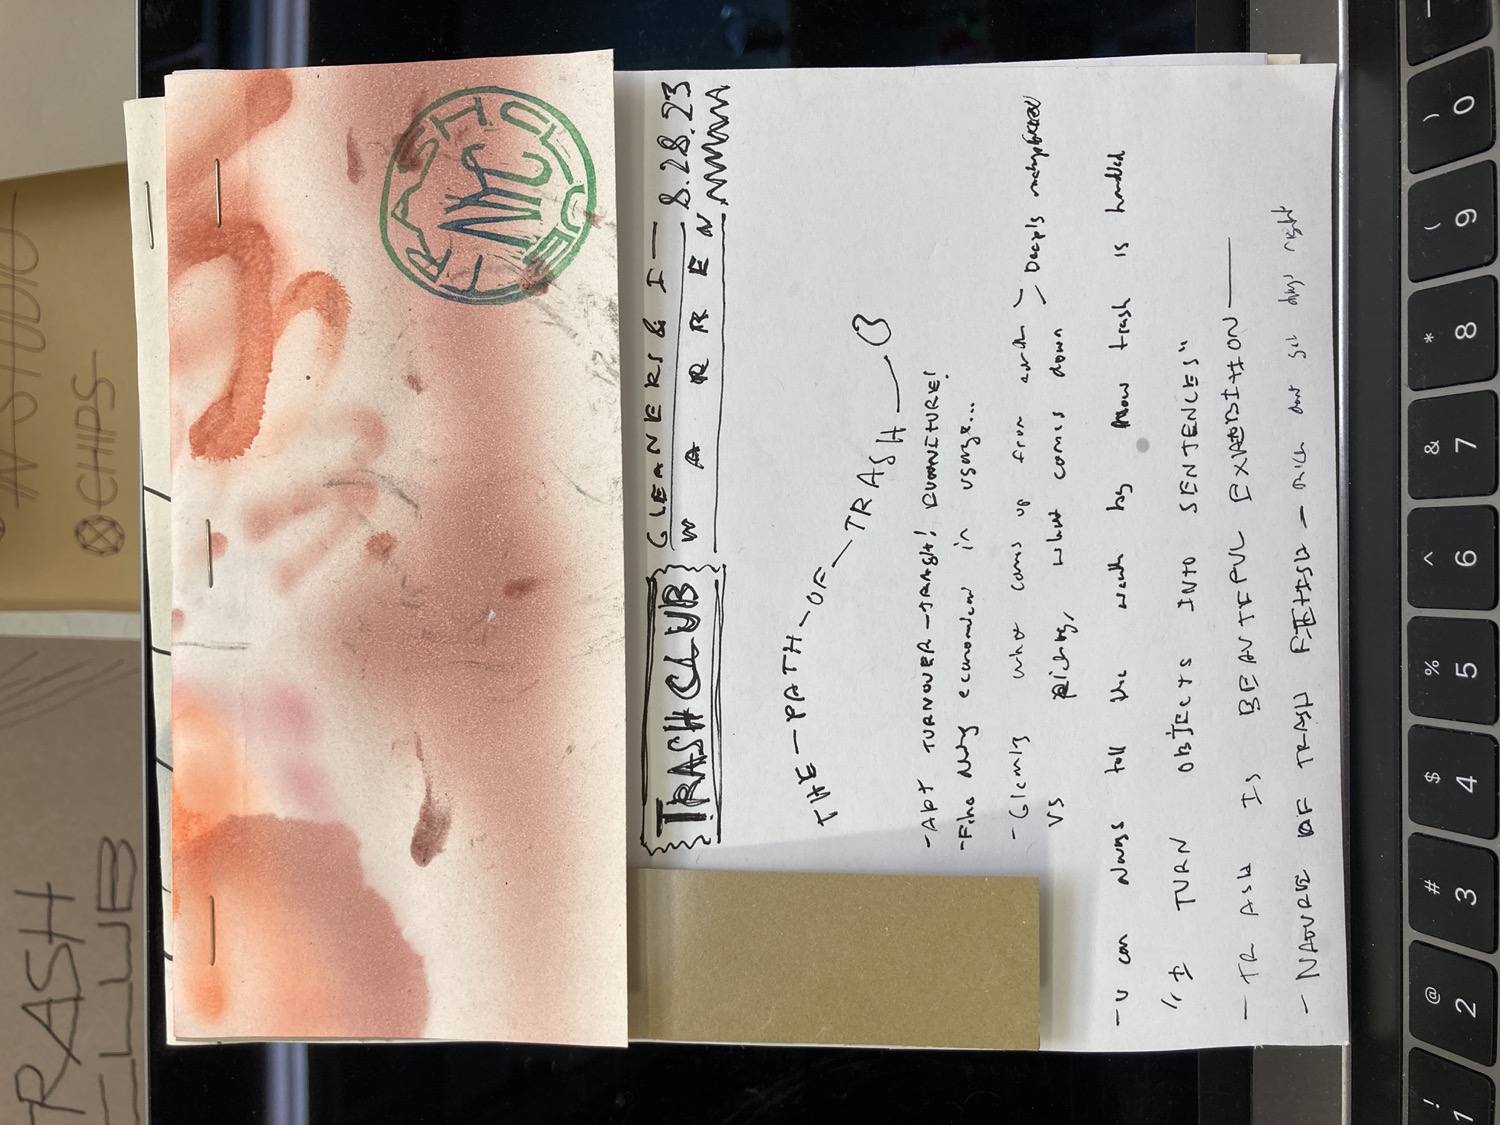 TRASH CLUB
NYC
TRASH CLUB GLEANERS & I — 8.28.23
WARREN
THE - PATH - OF - TRASH
- Apt TURNOVER - TRASH! FURNITURE!
- Gleaning what comes up from earth
vs picking, what comes down
- U can always tell the wealth by how trash is handled
"I TURN OBJECTS INTO SENTENCES"
- TRASH IS BEAUTIFUL EXHIBITION —
- NATURE OF TRASH FETISH -
TRASH
CLUB
STUDIO
CHIPS
! 1
@ 2
# 3
$ 4
% 5
^ 6
& 7
* 8
( 9
) 0